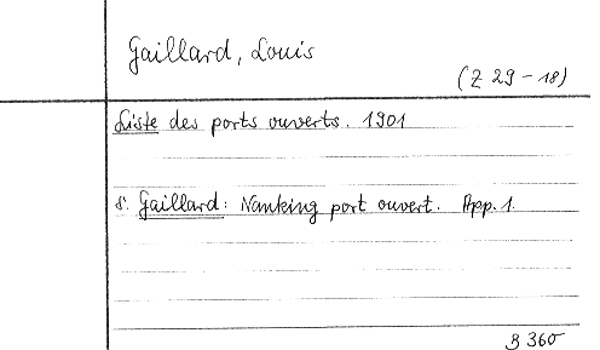 Gaillard, Louis
(Z 29-18)
Liste des ports ouverts. 1901
s. Gaillard: Nanking port ouvert. App. 1.
B 360